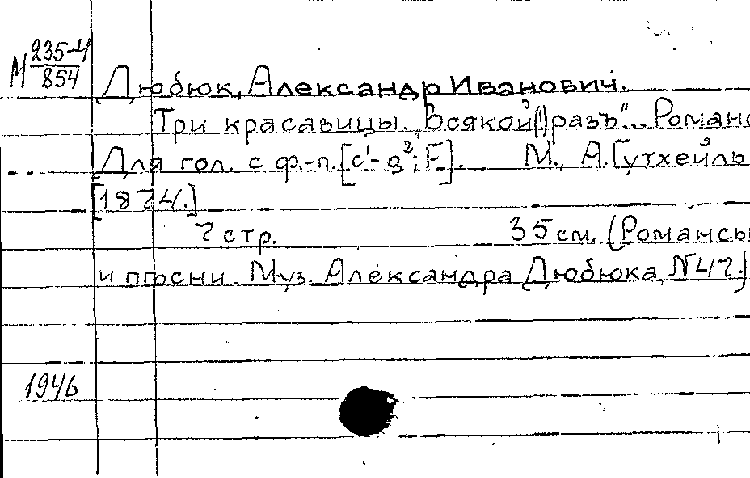 М 235-4/854
Дюбюк, Александр Иванович.
Три красавицы. "Всякой разъ"... Романс
Для гол. с ф.-п. [c¹-g²; F]. М., А. Гутхейль
[1874.]
7 стр. 35 см. (Романсы
и пѣсни. Муз. Александра Дюбюка, N47.)
1946